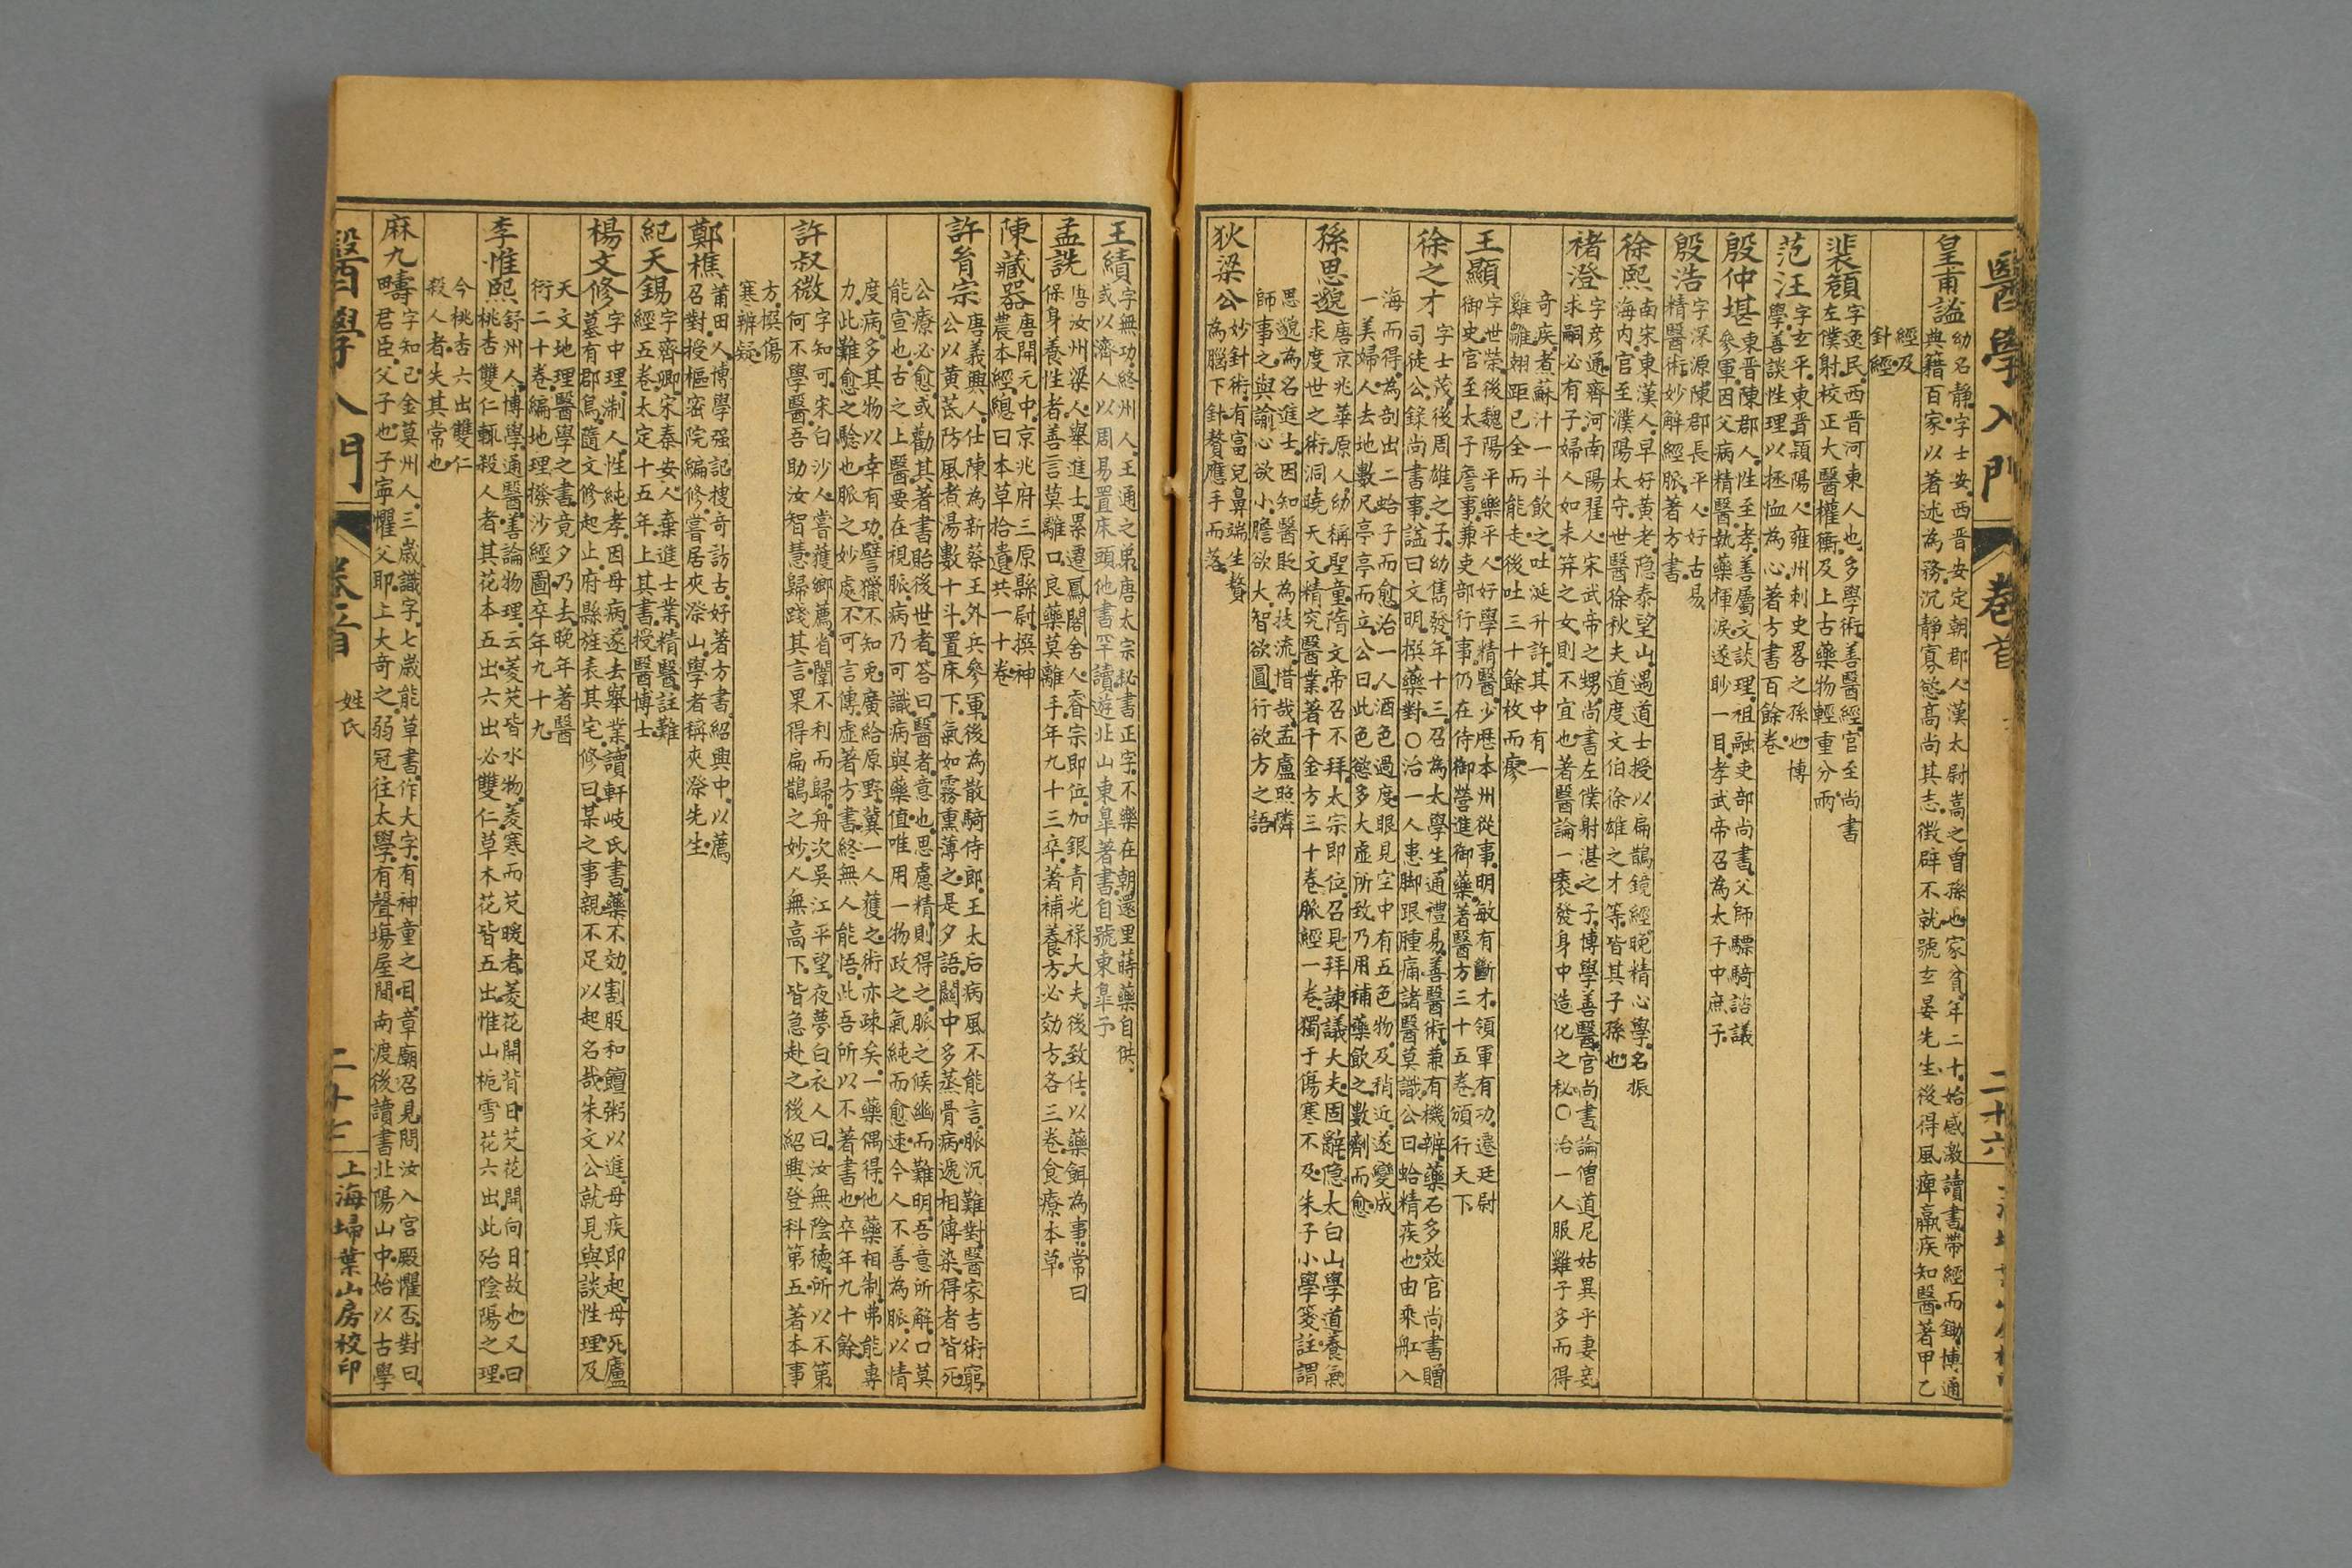 醫學入門 卷首 二十六
皇甫謐 幼名靜字士安西晋安定朝郡人漢太尉嵩之曾孫也家貧年二十始感激讀書帶經而鋤博通
典籍百家以著述為務沉靜寡慾高尚其志徵辟不就號玄晏先生後得風痺羸疾知醫著甲乙
經及
針經
裴頠 字逸民西晋河東人也多學術善醫經官至尚書
左僕射校正大醫權衡及上古藥物輕重分兩
范汪 字玄平東晋潁陽人雍州刺史畧之孫也博
學善談性理以拯恤為心著方書百餘卷
殷仲堪 東晋陳郡人性至孝善屬文談理祖融吏部尚書父師驃騎諮議
參軍因父病精醫執藥揮淚遂眇一目孝武帝召為太子中庶子
殷浩 字深源陳郡長平人好古易
精醫術妙解經脈著方書
徐熙 南宋東漢人早好黄老隐泰望山遇道士授以扁鵲鏡經晚精心學名振
海内官至濮陽太守世醫徐秋夫道度文伯徐雄之才等皆其子孫也
褚澄 字彦通齊河南陽翟人宋武帝之甥尚書左僕射湛之子博學善醫官尚書論僧道尼姑異乎妻妾
求嗣必有子婦人如未笄之女則不宜也著醫論一褁發身中造化之秘〇治一人服雞子多而得
奇疾煮蘇汁一斗飲之吐涎升許其中有一
雞雛翅距已全而能走後吐三十餘枚而瘳
王顯 字世榮後魏陽平樂平人好學精醫少歷本州從事明敏有斷才領軍有功遷廷尉
御史官至太子詹事兼吏部行事仍在侍御營進御藥著醫方三十五卷頒行天下
徐之才 字士茂後周雄之子幼雋發年十三召為太學生通禮易善醫術兼有機辨藥石多效官尚書贈
司徒公録尚書事諡曰文明撰藥對〇治一人患脚跟腫痛諸醫莫識公曰蛤精疾也由乘舡入
海而得為剖出二蛤子而愈治一人酒色過度眼見空中有五色物及稍近遂變成
一美婦人去地數尺亭亭而立公曰此色慾多大虛所致乃用補藥飲之數劑而愈
孫思邈 唐京兆華原人幼稱聖童隋文帝召不拜太宗即位召見拜諫議大夫固辭隐太白山學道養氣
求度世之術洞曉天文精究醫業著千金方三十卷脈經一卷獨于傷寒不及朱子小學箋註謂
思邈為名進士因知醫貶為技流惜哉孟盧照隣
師事之與論心欲小膽欲大智欲圓行欲方之語
狄梁公 妙針術有富兒鼻端生贅
為腦下針贅應手而落
王績 字無功終州人王通之弟唐太宗秘書正字不樂在朝還里蒔藥自供
或以濟人以周易置床頭他書罕讀遊北山東皐著書自號東皐子
孟詵 唐汝州梁人舉進士累遷鳳閣舍人睿宗即位加銀青光祿大夫後致仕以藥餌為事常曰
保身養性者善言莫離口良藥莫離手年九十三卒著補養方必効方各三卷食療本草
陳藏器 唐開元中京兆府三原縣尉撰神
農本經總曰本草拾遺共一十卷
許胤宗 唐義興人仕陳為新蔡王外兵參軍後為散騎侍郎王太后病風不能言脈沉難對醫家吉術窮
公以黄芪防風煮湯數十斗置床下氣如霧熏薄之是夕語關中多蒸骨病遞相傳染得者皆死
公療必愈或勸其著書貽後世者答曰醫者意也思慮精則得之脈之候幽而難明吾意所解口莫
能宣也古之上醫要在視脈病乃可識病與藥值唯用一物政之氣純而愈速今人不善為脈以情
度病多其物以幸有功譬獵不知兔廣給原野冀一人獲之術亦疎矣一藥偶得他藥相制弗能專
力此難愈之騐也脈之妙處不可言傳虛著方書終無人能悟此吾所以不著書也卒年九十餘
許叔微 字知可宋白沙人嘗獲鄉薦省闈不利而歸舟次吳江平望夜夢白衣人曰汝無陰德所以不第
何不學醫吾助汝智慧歸踐其言果得扁鵲之妙人無高下皆急赴之後紹興登科第五著本事
方撰傷
寒辨疑
鄭樵 莆田人博學强記搜奇訪古好著方書紹興中以薦
召對授樞密院編修嘗居夾漈山學者稱夾漈先生
紀天錫 字齊卿宋泰安人棄進士業精醫註難
經五卷太定十五年上其書授醫博士
楊文修 字中理淛人性純孝因母病遂去舉業讀軒岐氏書藥不効割股和饘粥以進母疾即起母死廬
墓有郡鳥隨文修起止府縣旌表其宅修曰某之事親不足以起名哉朱文公就見與談性理及
天文地理醫學之書竟夕乃去晚年著醫
衍二十卷編地理撥沙經圖卒年九十九
李惟熙 舒州人博學通醫善論物理云菱芡皆水物菱寒而芡暖者菱花開背日芡花開向日故也又曰
桃杏雙仁輒殺人者其花本五出六出必雙仁草木花皆五出惟山梔雪花六出此殆陰陽之理
今桃杏六出雙仁
殺人者失其常也
麻九疇 字知已金莫州人三歲識字七歲能草書作大字有神童之目章廟召見問汝入宮殿懼否對曰
君臣父子也子寜懼父耶上大奇之弱冠往太學有聲塲屋間南渡後讀書北陽山中始以古學
醫學入門 卷首 姓氏 二十七 上海埽葉山房校印